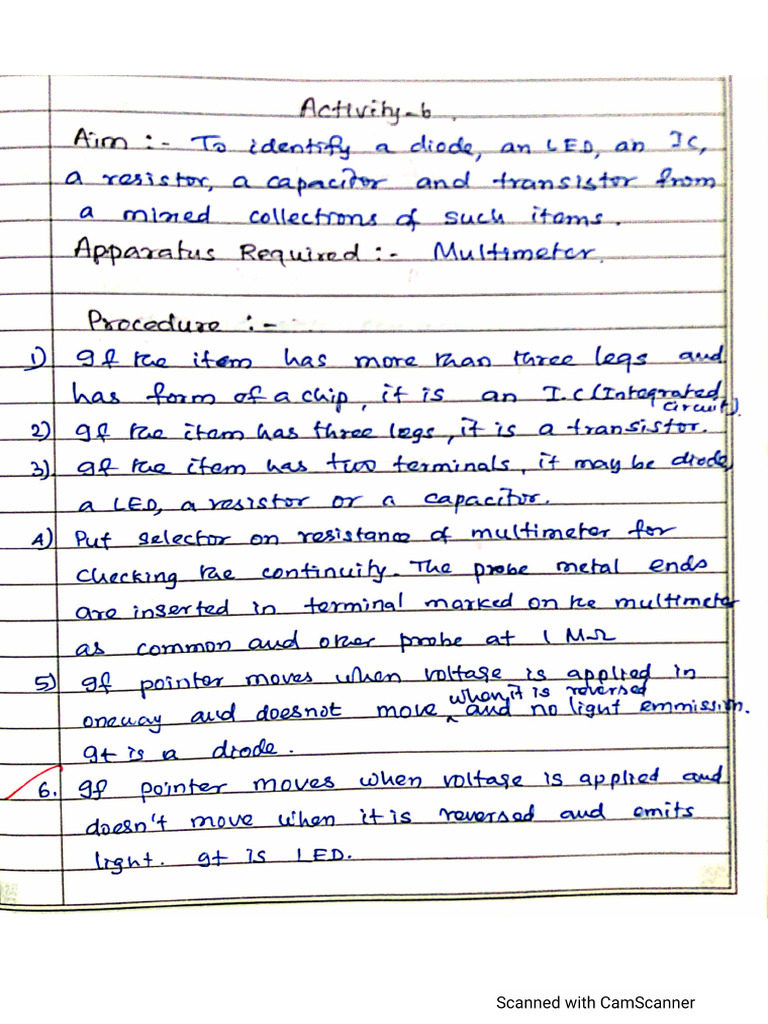 Activity-6.
Aim :- To identify a diode, an LED, an IC,
a resistor, a capacitor and transistor from
a mined collections of such items.
Apparatus Required :- Multimeter.
Procedure :-
1) If the item has more than three legs and
has form of a chip, it is an I.C (Integrated
circuit).
2) If the item has three legs, it is a transistor.
3) If the item has two terminals, it may be diode,
a LED, a resistor or a capacitor.
4) Put selector on resistance of multimeter for
checking the continuity. The probe metal ends
are inserted in terminal marked on the multimeter
as common and other probe at 1 MΩ
5) If pointer moves when voltage is applied in
oneway and doesnot move when it is reversed and no light emmission.
It is a diode.
6. If pointer moves when voltage is applied and
doesn't move when it is reversed and emits
light. It is LED.
Scanned with CamScanner